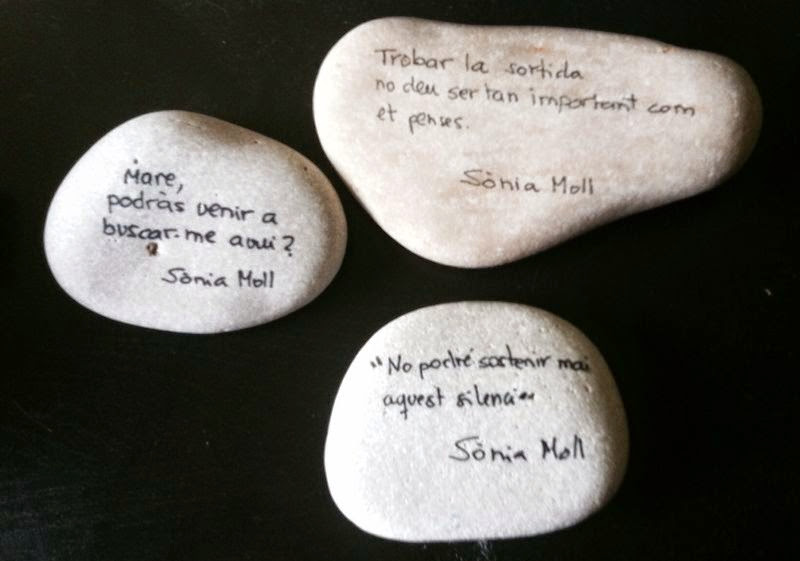 Trobar la sortida
no deu ser tan important com
et penses.
Sònia Moll
Mare,
podràs venir a
buscar-me aquí?
Sònia Moll
"No podré sostenir mai
aquest silenci"
Sònia Moll